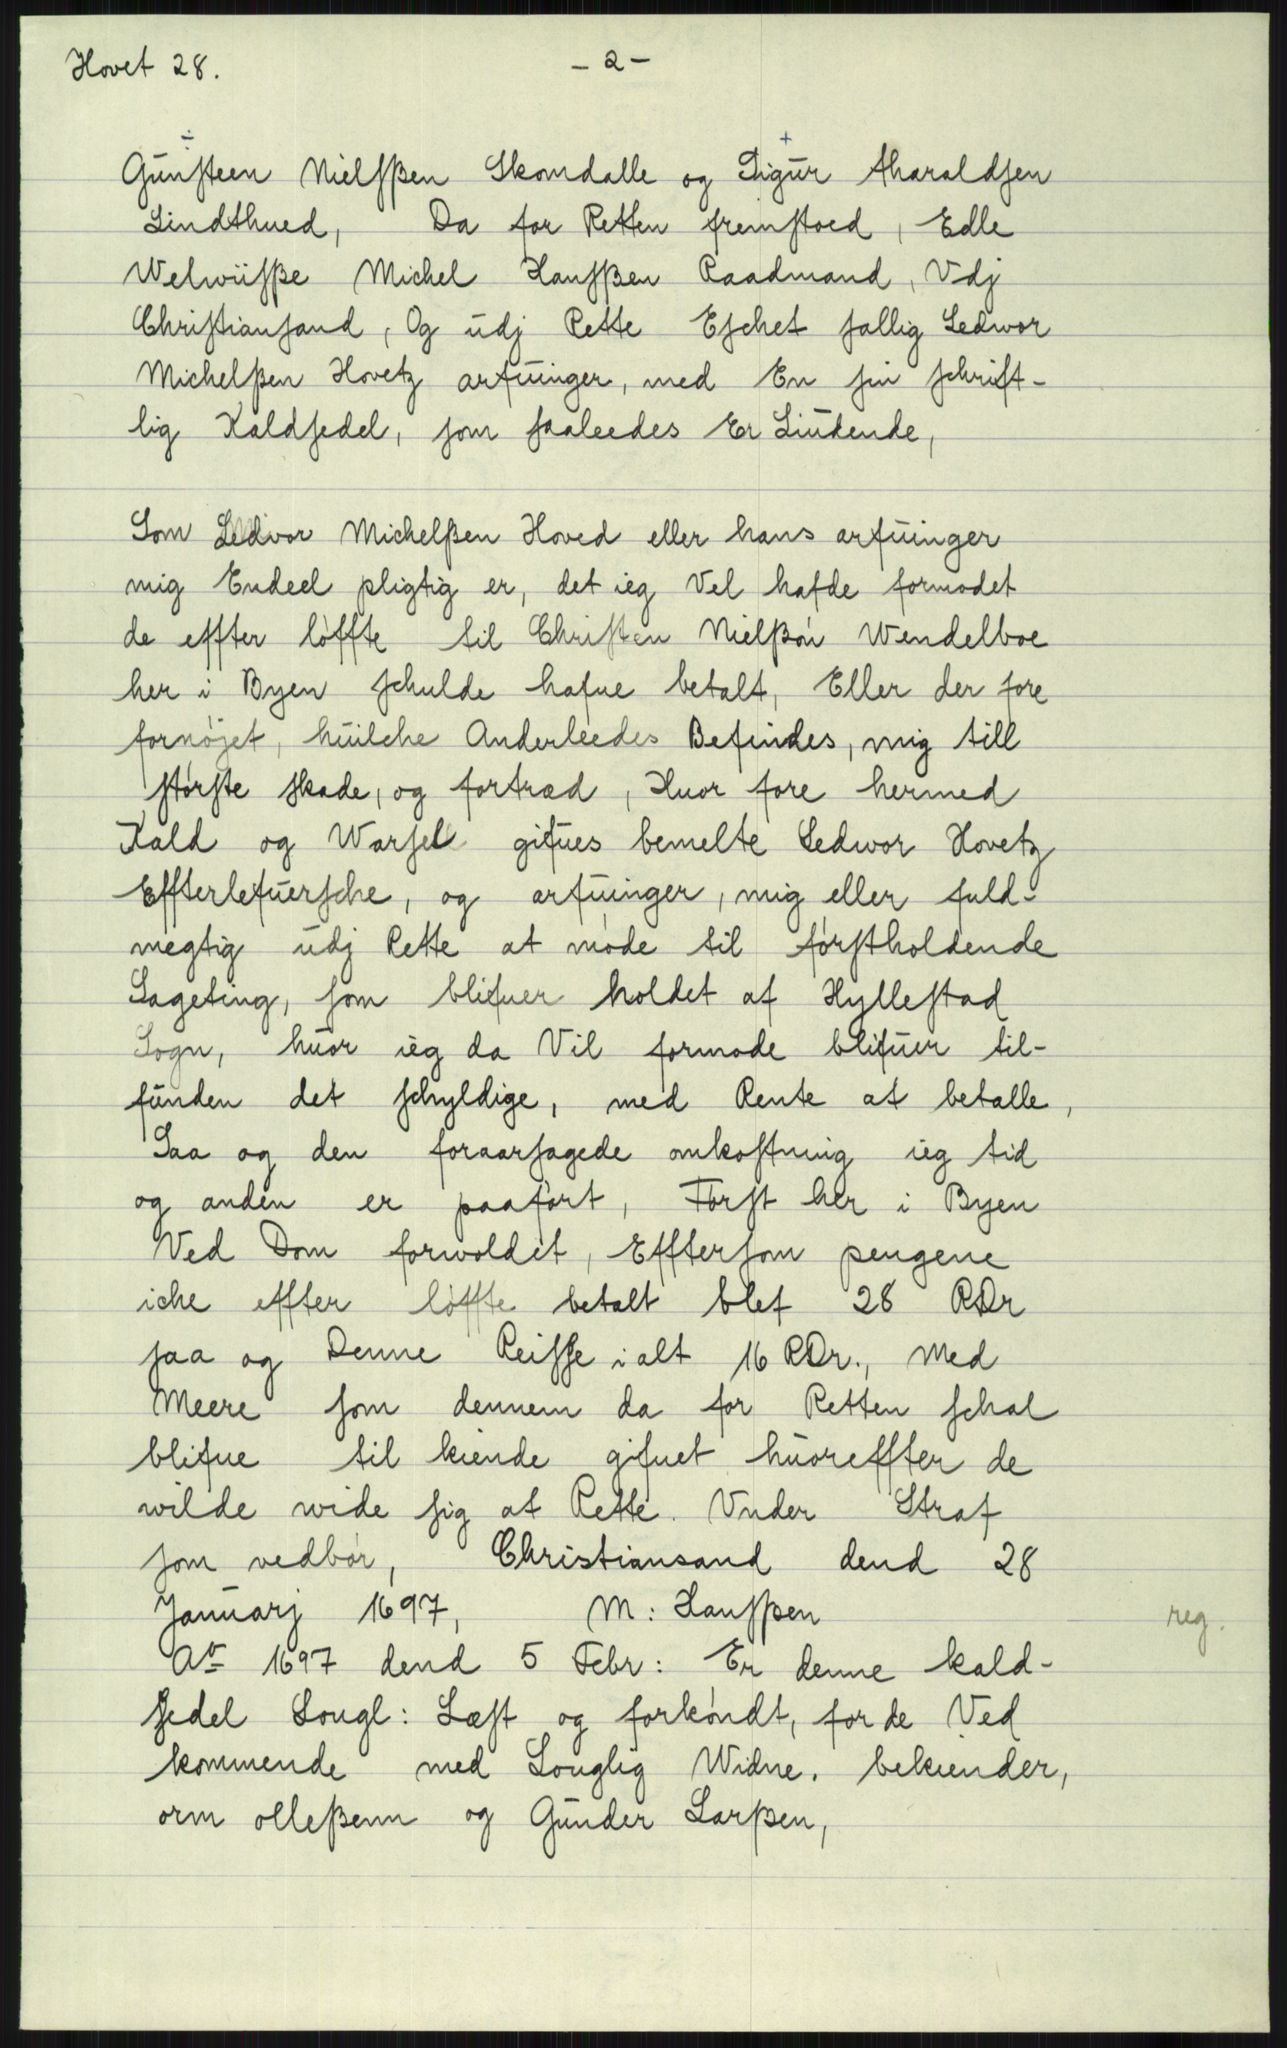 Hovet 28.
- 2 -
Gunsteen Nielsßen Skomdalle og Sigur Aharaldsen
Lindthued, Da for Retten fremstoed, Edle
Welwiisße Michel Hansßen Raadmand, Vdj
Christiansand, Og udj Rette Eschet sallig Ledwor
Michelßen Hovetz arfuinger, med En sin schrift-
lig Kaldsedel, som saaleedes Er Liudende,
Som Ledvor Michelßen Hoved eller hans arfuinger
mig Endeel pligtig er, det ieg Vel hafde formodet
de effter løffte til Christen Nielßøn Wendelboe
her i Byen schulde hafue betalt, Eller der fore
fornøjet, huilche Anderleedes Befindes, mig till
største skade, og fortræd, Huor fore hermed
Kald og Warsel gifues bemelte Ledwor Hovetz
Effterlefuersche, og arfuinger, mig eller fuld-
megtig udj Rette at møde til førstholdende
Sageting, som blifuer holdet af Hyllestad
Sogn, huor ieg da Vil formode blifuer til-
funden det schyldige, med Rente at betalle,
Saa og den foraarsagede omkostning ieg tid
og anden er paaført, Først her i Byen
Ved Dom forvoldet, Efftersom pengene
iche effter løffte betalt blef 28 RDr
saa og Denne Reisse i alt 16 RDr., Med
Meere som dennem da for Retten schal
blifue til kiende gifuet huoreffter de
wilde wide sig at Rette. Vnder Straf
som vedbør, Christiansand dend 28
Januarj 1697, M: Hansßen
reg.
Ao 1697 dend 5 Febr: Er denne kald-
sedel Lougl: Læst og forkøndt, for de Ved
kommende med Louglig Widne. bekiender,
orm olleßenn og Gunder Larßen,